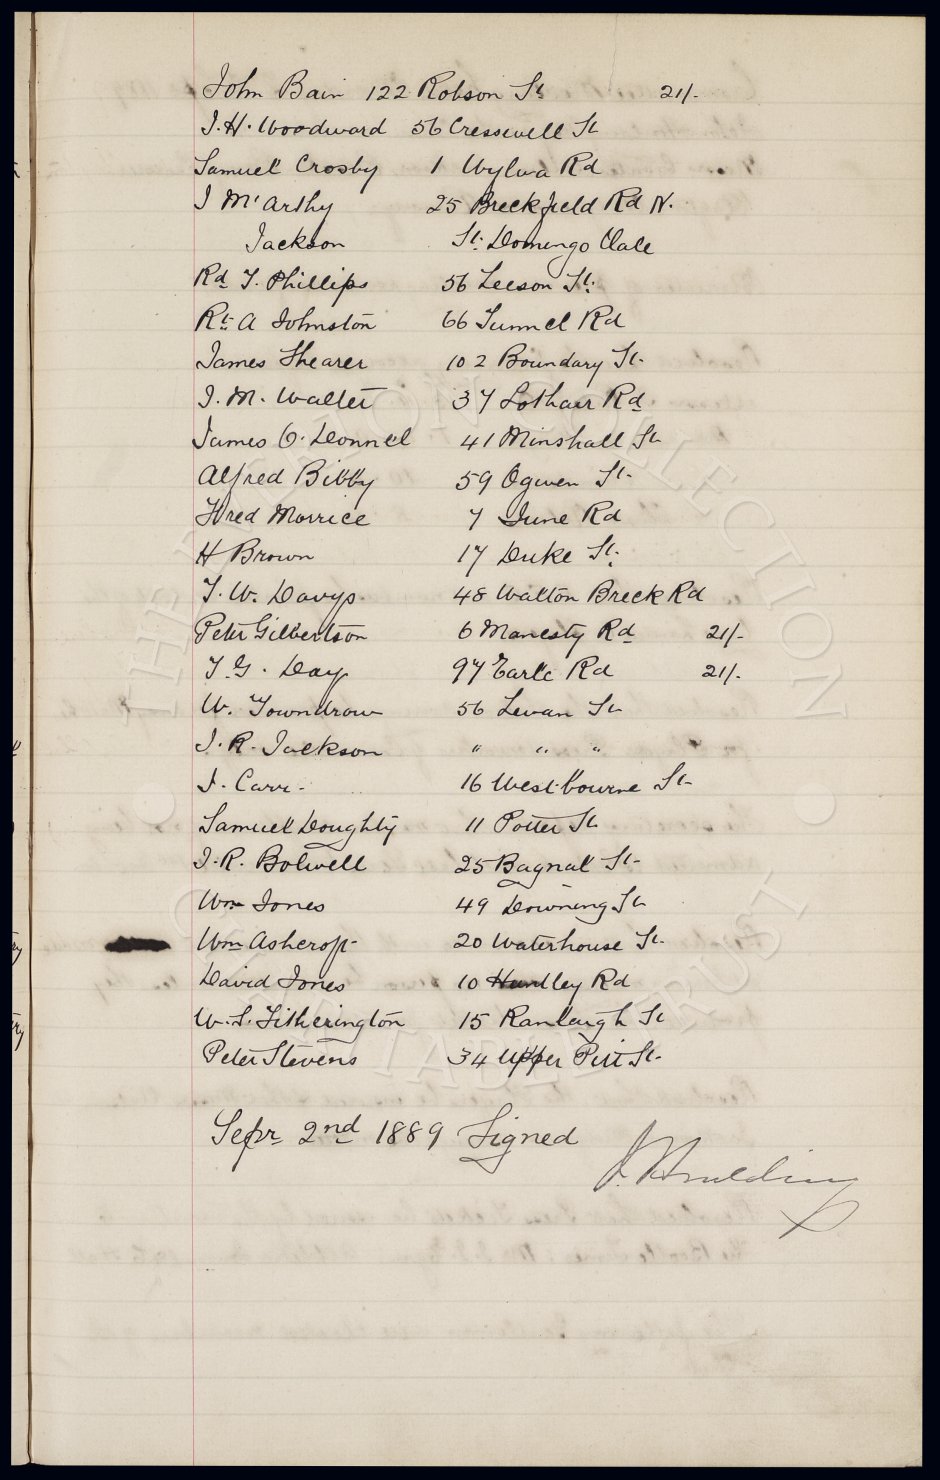 John Bain 122 Robson St 21/-
J. H. Woodward 56 Cresswell St
Samuel Crosby 1 Wylva Rd
J McArthy 25 Breckfield Rd N.
Jackson St. Domingo Vale
Rd T. Phillips 56 Leeson St.
Rt A Johnston 66 Tunnel Rd
James Shearer 102 Boundary St.
J. M. Walter 37 Lothair Rd
James O. Donnel 41 Minshall St
Alfred Bibby 59 Ogwen St.
Fred Morrice 7 June Rd
H Brown 17 Duke St.
T. W. Davys. 48 Walton Breck Rd
Peter Gilbertson 6 Manesty Rd 21/-
T. G. Day 97 Earle Rd 21/-
W. Towndrow 56 Levan St
J. R. Jackson " " "
J. Carr. 16 Westbourne St
Samuel Doughty 11 Potter St
J. R. Bolwell 25 Bagnall St.
Wm Jones 49 Downing St
Wm Ashcroft 20 Waterhouse St.
David Jones 10 Huntley Rd
W. S. Fitherington 15 Ranleagh St
Peter Stevens 34 Upper Pitt St.
Sepr 2nd 1889 Signed
J. Houlding
THE HERITAGE COLLECTION
CHARITABLE TRUST